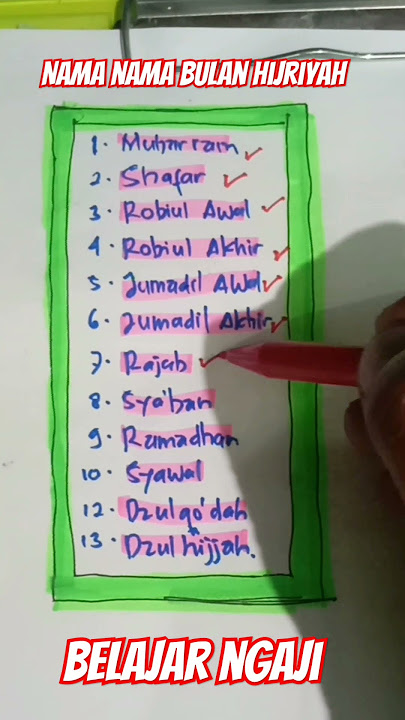 NAMA NAMA BULAN HIJRIYAH
1. Muharram
2. Shafar
3. Robiul Awal
4. Robiul Akhir
5. Jumadil Awal
6. Jumadil Akhir
7. Rajab
8. Sya'ban
9. Ramadhan
10. Syawal
12. Dzulqo'dah
13. Dzulhijjah.
BELAJAR NGAJI